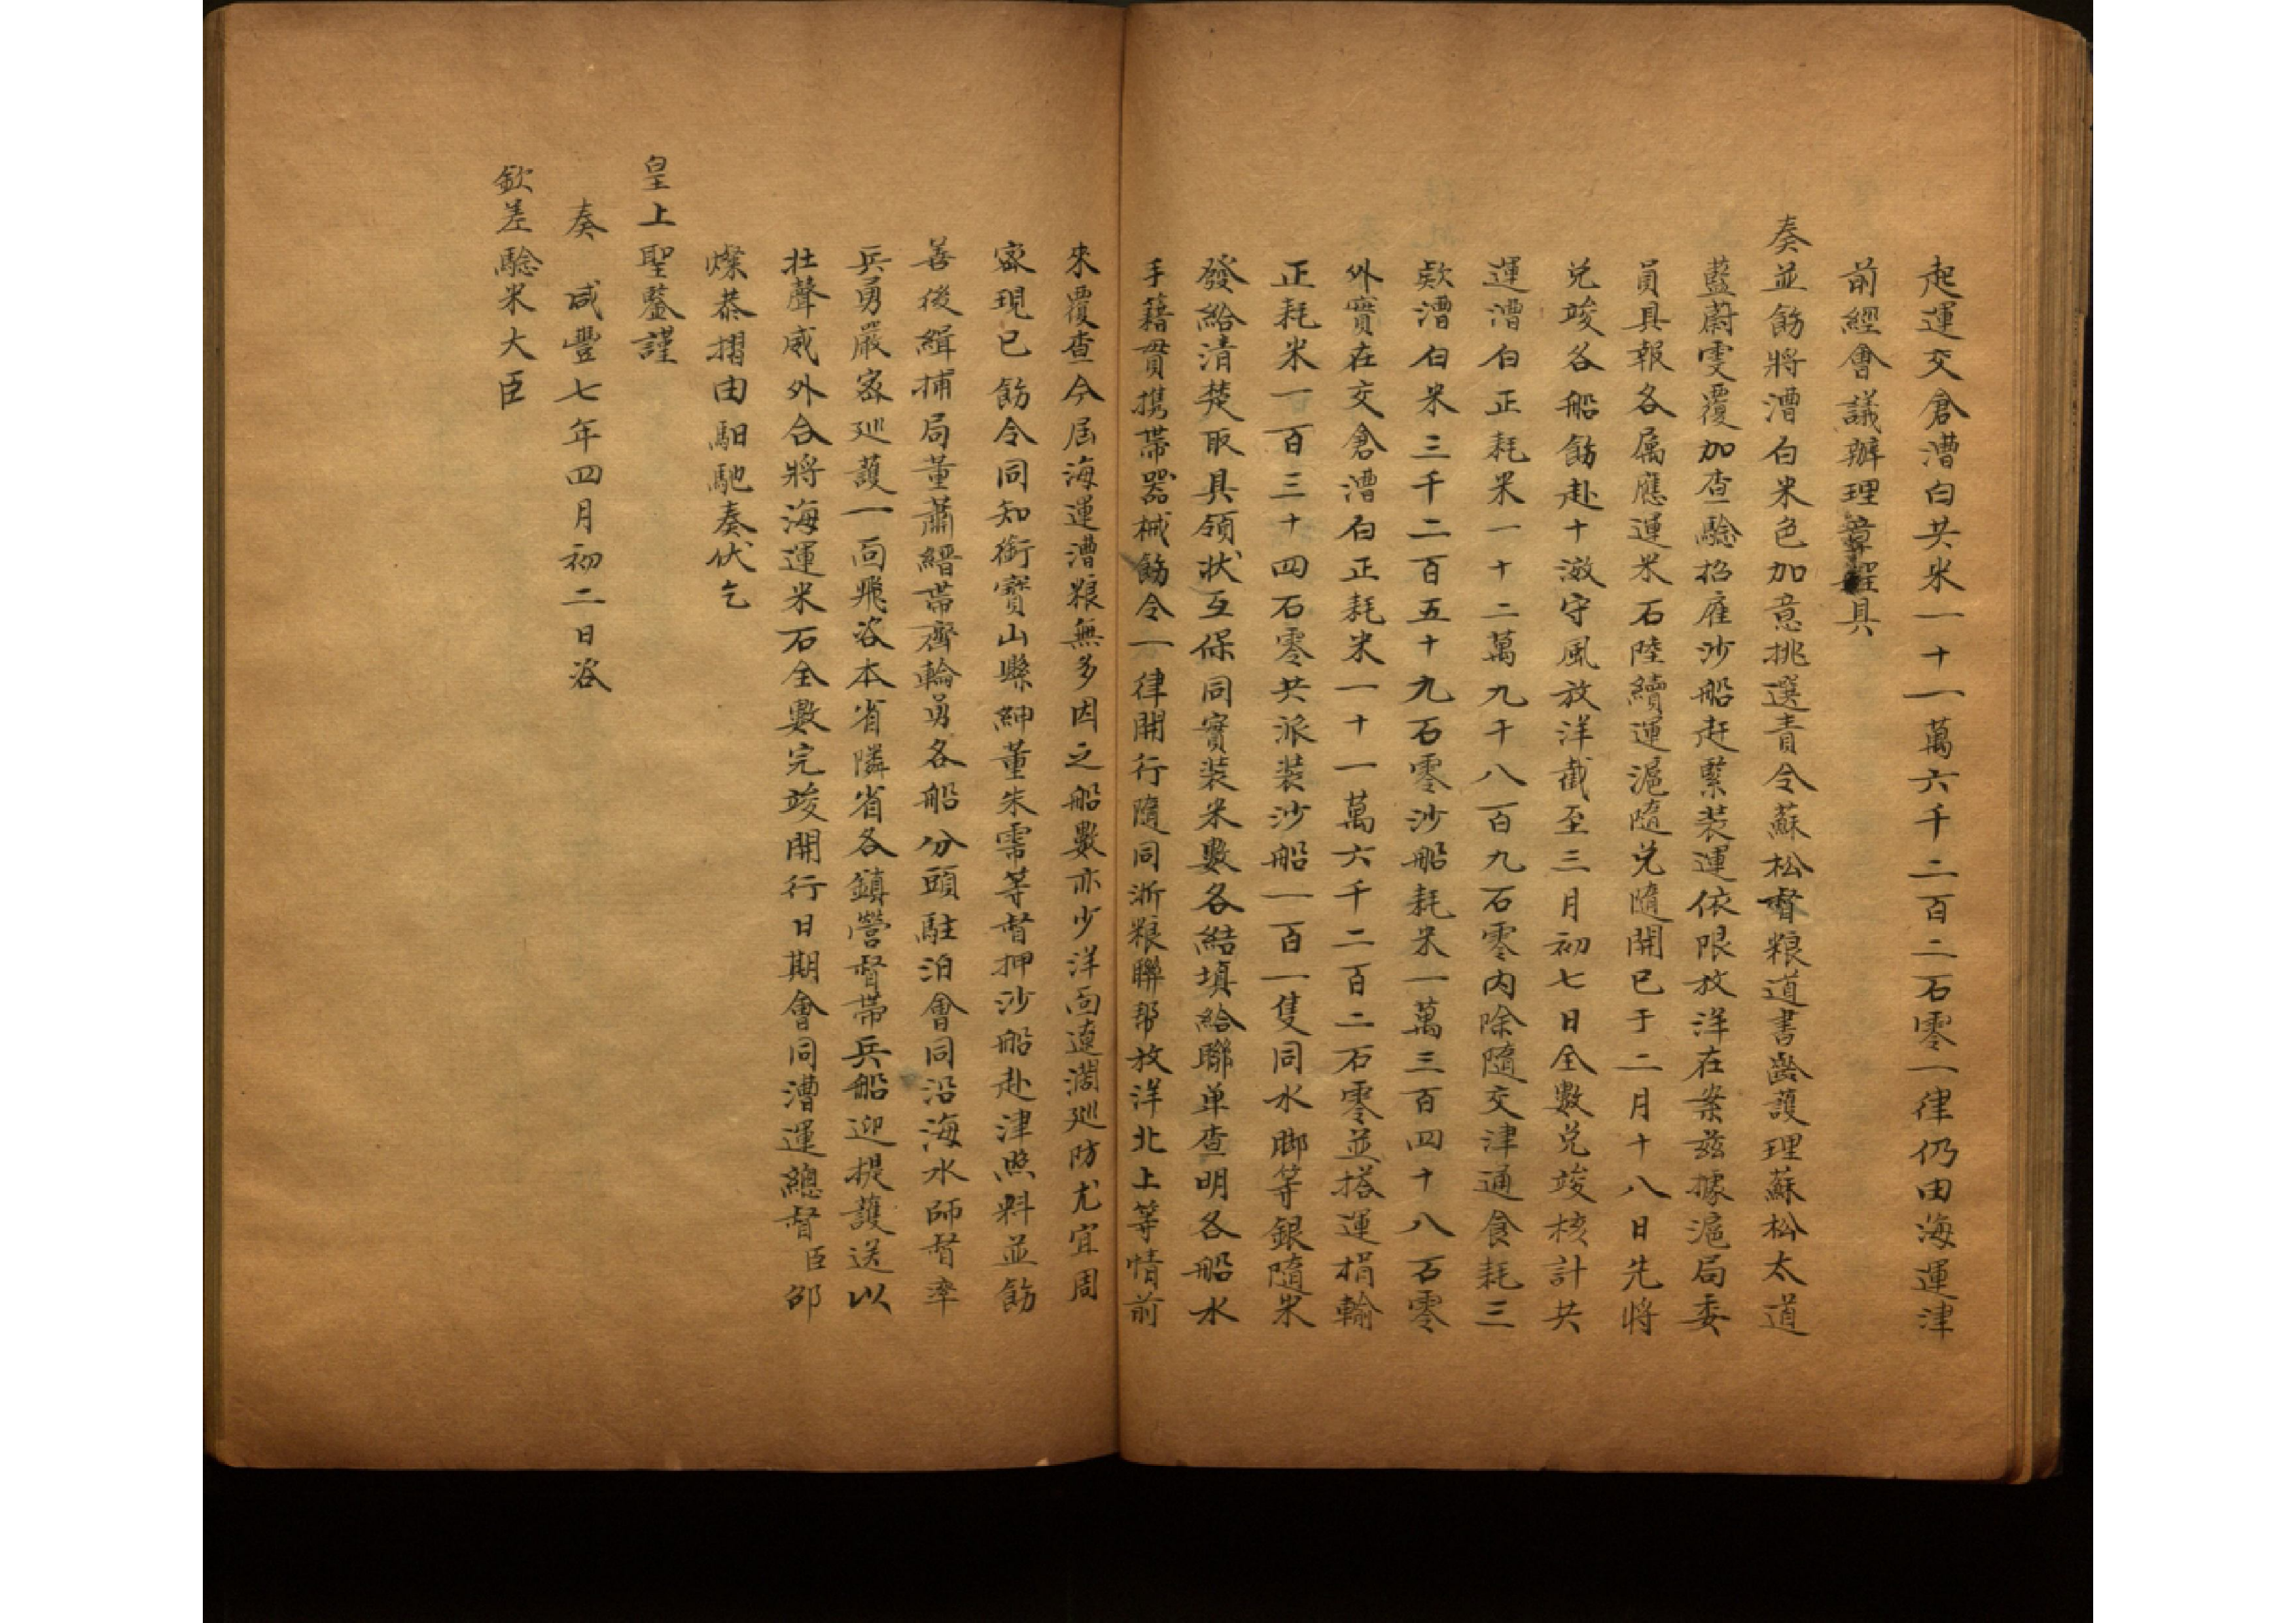 起運交倉漕白共米一十一萬六千二百二石零一律仍由海運津
前經會議辦理章程具
奏並飭將漕白米色加意挑選責令蘇松督粮道書齡護理蘇松太道
藍蔚雯覆加查驗招雇沙船赶緊装運依限放洋在案兹據滬局委
員具報各属應運米石陸續運滬隨兌隨開已于二月十八日先將
兌竣各船飭赴十滧守風放洋截至三月初七日全數兌竣核計共
運漕白正耗米一十二萬九千八百九石零内除隨交津通食耗三
欵漕白米三千二百五十九石零沙船耗米一萬三百四十八石零
外實在交倉漕白正耗米一十一萬六千二百二石零並搭運捐輸
正耗米一百三十四石零共派装沙船一百一隻同水脚等銀隨米
發給清楚取具領狀互保同實装米數各結填給聯单查明各船水
手籍貫携帶器械飭令一律開行隨同浙粮聯帮放洋北上等情前
來覆查今屆海運漕粮無多因之船數亦少洋面遼濶廵防尤宜周
密現已飭令同知銜寶山縣紳董朱需等督押沙船赴津照料並飭
善後緝捕局董蕭縉帶齊輪勇各船分頭駐泊會同沿海水師督率
兵勇嚴密廵護一面飛咨本省隣省各鎮營督帶兵船迎提護送以
壮聲威外合將海運米石全數完竣開行日期會同漕運總督臣邵
燦恭摺由馹馳奏伏乞
皇上聖鑒謹
奏 咸豐七年四月初二日咨
欽差驗米大臣